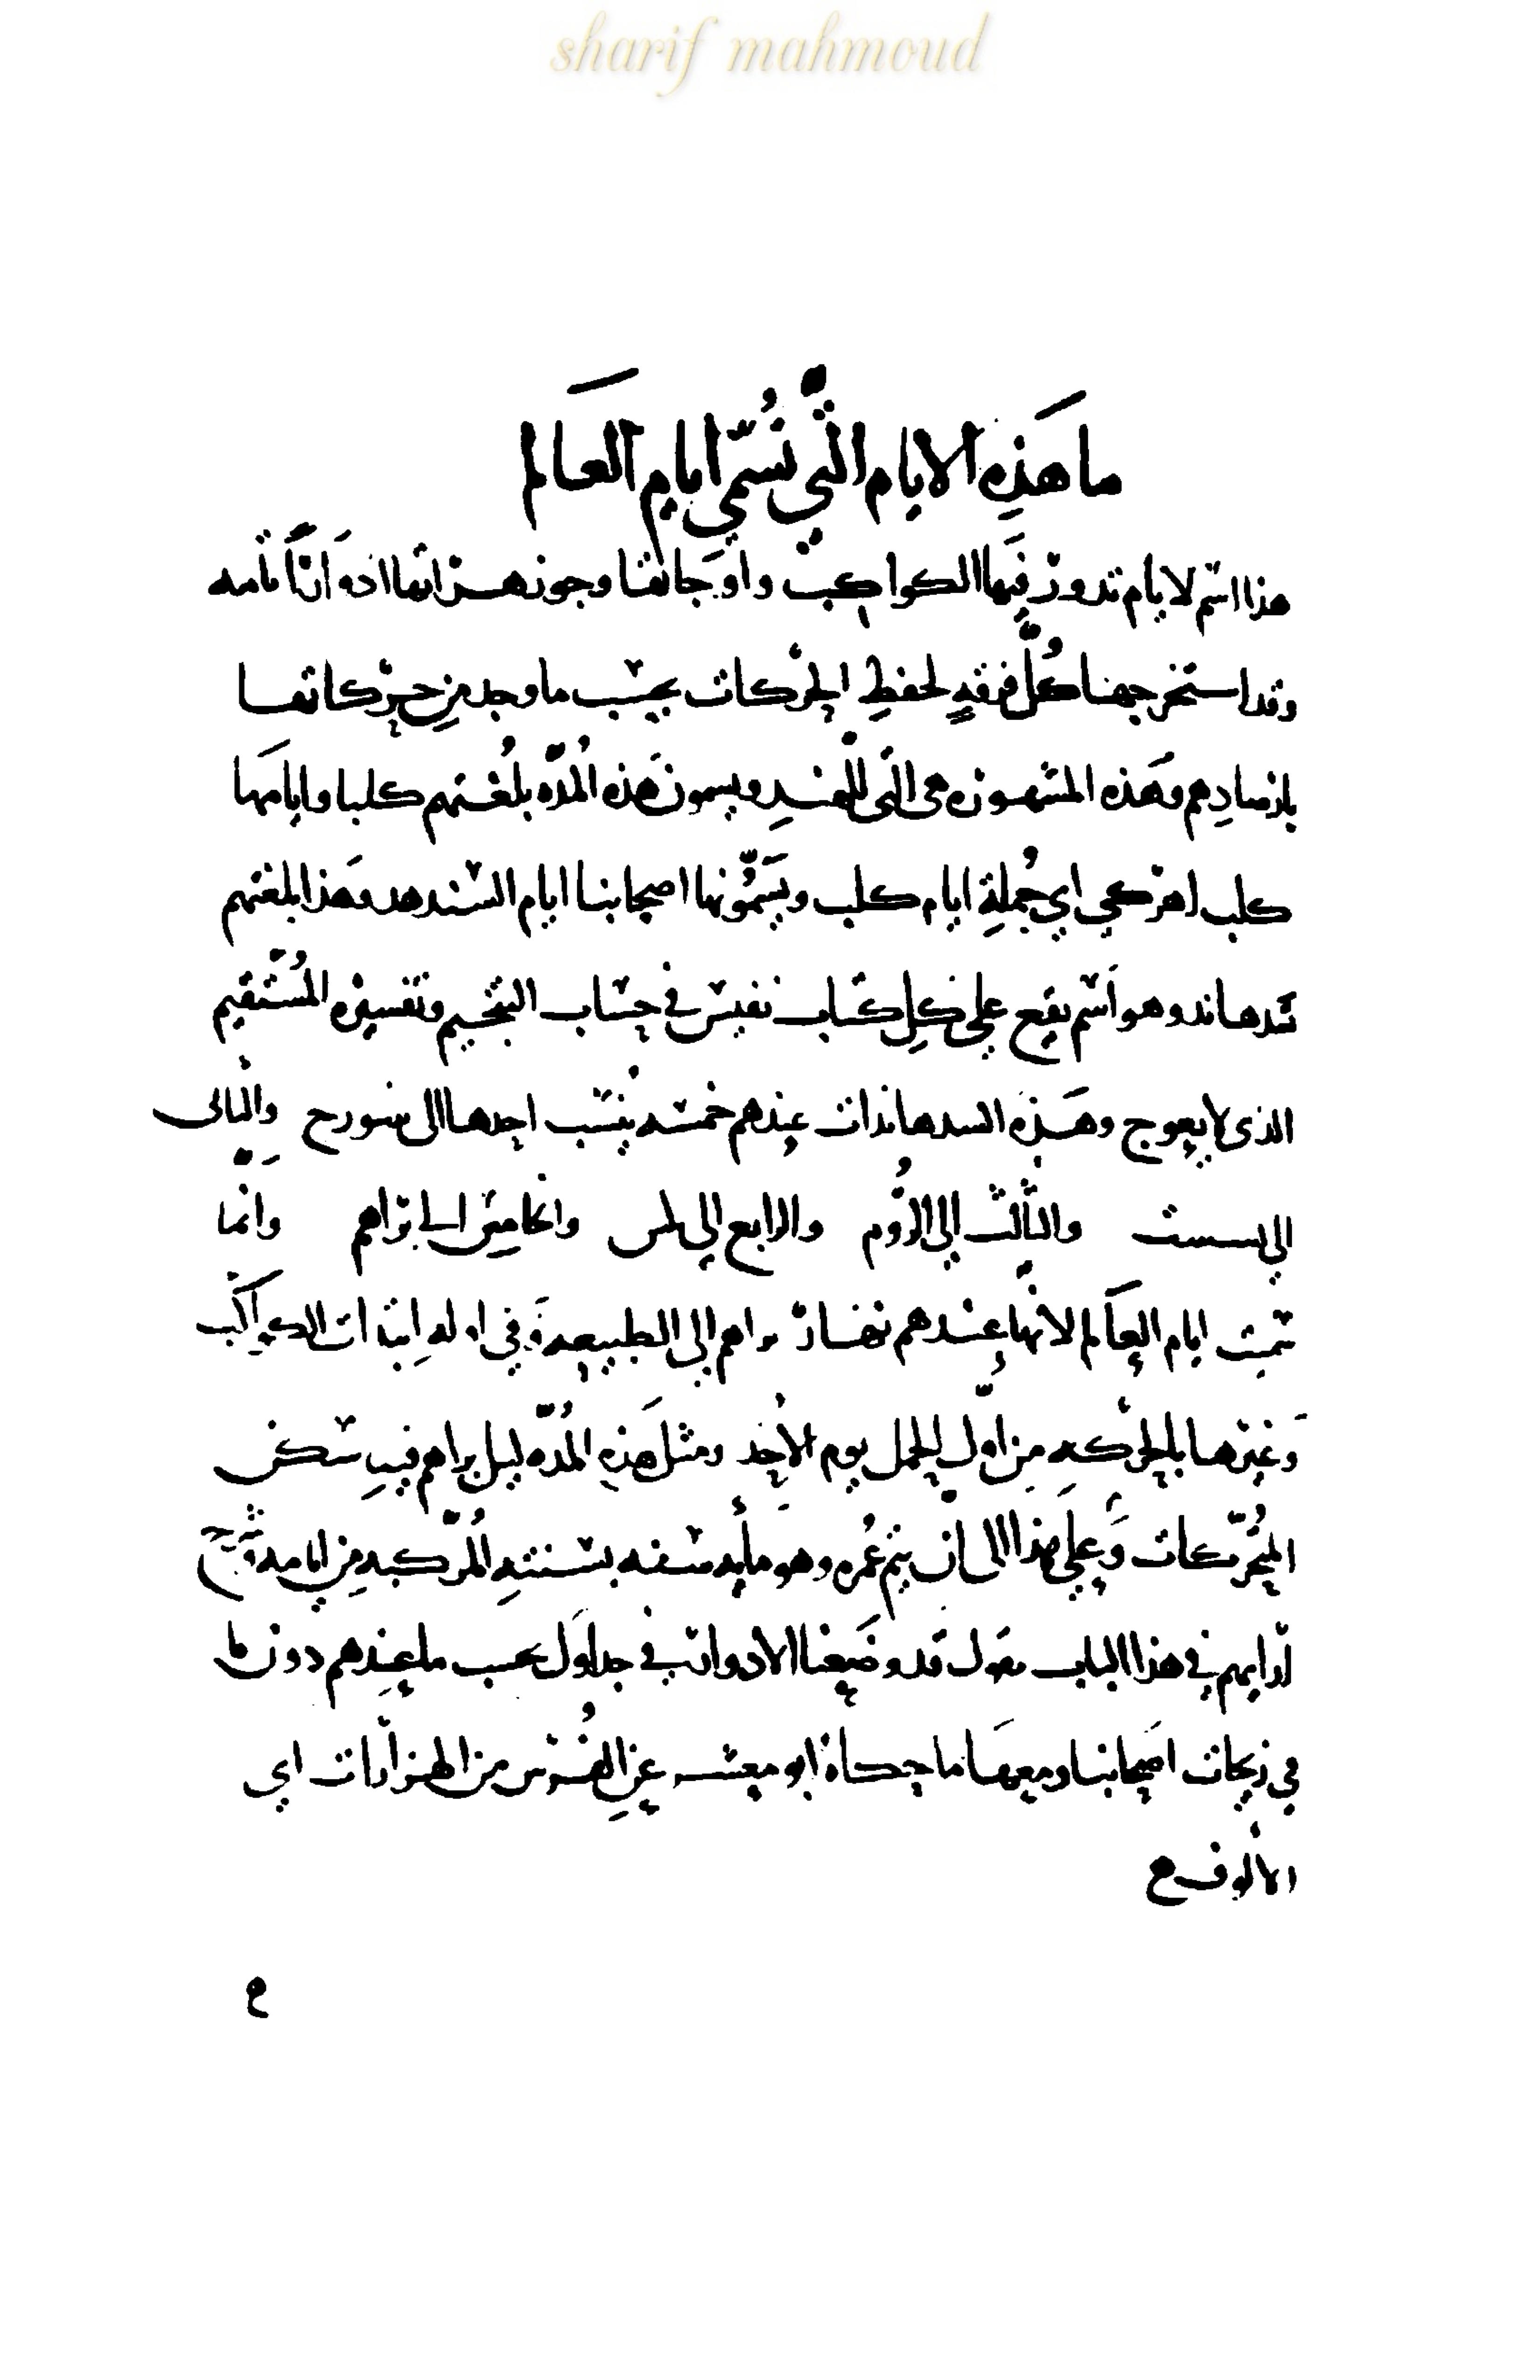 sharif mahmoud
ما هذه الايام التي تسمى ايام العالم
هذا اسم لايام تدور فيها الكواكب واوجاتها وجوزهراتها ادوارًا تامه
وقد استخرجها كل فرقهٍ لحفظِ الحركات بحسب ما وجد من حركاتها
بارصادهم وهذه المشهوره هى التى للهند ويسمون هذه المدّه بلغتهم كلبا وايامها
كلب اهركن اي جُملة ايام كلب ويسمّونها اصحابنا ايام السندهند وهذا بلغتهم
سدهاند وهو اسم يقع على كل كتاب نفيس في حساب التنجيم وتفسيره المستقيم
الذى لا يعوج وهذه السدهاندات عندهم خمسه ينسب احدها الى سورج والثانى
الي بسست والثالث الي الرُوم والرابع الي بلس والخامس الى براهم وانّما
سميت ايام العالم لانها عندهم نهار براهم الي الطبيعه وفي اوله ابتدات الكواكب
وغيرها بالحركه من اول الحمل يوم الاحد ومثل هذه المدّه ليل براهم فيه سكن
المتحركات وعلى هذا الى ان يتم عُمره وهو مايه سنه بسنته المركبه من ايامه وشرح
ارايهم في هذا الباب يطول قد وضعنا الادوار في جداول بحسب ما عندهم دون ما
في زيجات اصحابنا ومعها ما حكاه ابو معشر عن الفُرس من الهزارات اي
الالوف